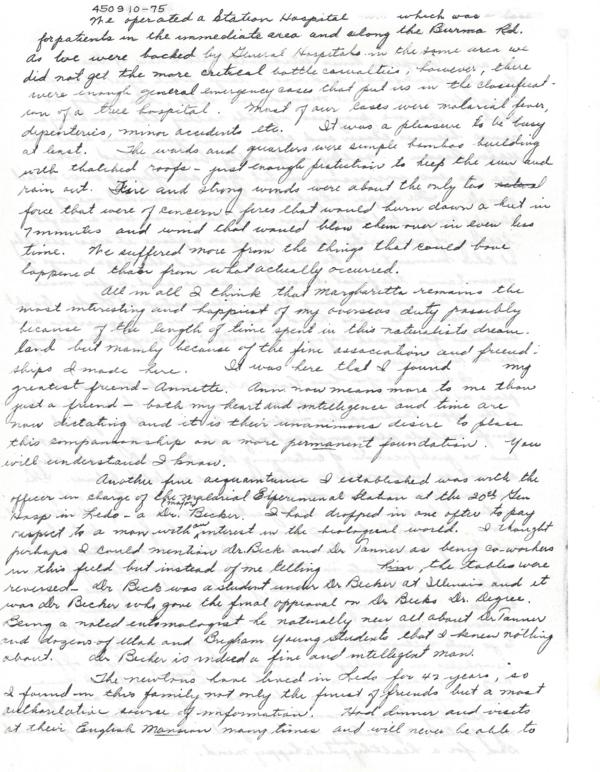 450910-75
We operated a Station Hospital which was
for patients in the immediate area and along the Burma Rd.
As we were backed by General Hospitals in the same area we
did not get the more critical battle casualties, however, there
were enough general emergency cases that put us in the classificat-
ion of a true hospital. Most of our cases were malarial fever,
dysenteries, minor accidents etc. It was a pleasure to be busy
at least. The wards and quarters were simple bamboo building
with thatched roofs - just enough protection to keep the sun and
rain out. Fire and strong winds were about the only two
force that were of concern - fires that would burn down a hut in
7 minutes and wind that would blow them over in even less
time. We suffered more from the things that could have
happened than from what actually occurred.
All in all I think that Margharetta remains the
most interesting and happiest of my overseas duty possibly
because of the length of time spent in this naturalists dream-
land but mainly because of the fine association and friend-
ships I made here. It was here that I found my
greatest friend - Annette. Ann now means more to me than
just a friend - both my heart and intelligence and time are
now dictating and it is their unanimous disire to place
this companionship on a more permanent foundation. You
will understand I know.
Another fine acquaintance I established was with the
officer in charge of the Malarial Experimental Station at the 20th Gen
Hosp in Ledo - a Dr. (major) Becker. I had dropped in one after to pay
respect to a man with an interest in the biological world. I thought
perhaps I could mention Dr. Beck and Dr Tanner as being co-workers
in this field but instead of me telling him, the tables were
reversed - Dr Beck was a student under Dr Becker at Illinois and it
was Dr Becker who gave the final approval on Dr Becks Dr. Degree.
Being a noted entomologist he naturally new all about Dr Tanner
and dozens of Utah and Brigham Young Students that I knew nothing
about. Dr Becker is indeed a fine and intelligent man.
The newtons have lived in Ledo for 42 years, so
I found in this family not only the finest of friends but a most
authoritative source of information. Had dinner and visits
at their English Mansion many times and will never be able to